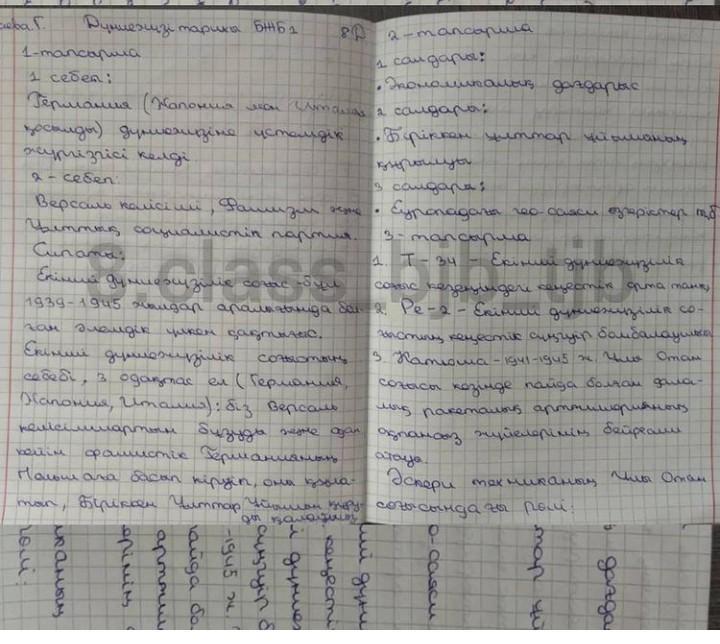 Дүниежүзі тарихы БЖБ1 8Д
1-тапсырма
1 себеп:
Германия (Жапония мен Италия
қосылды) дүниежүзіне үстемдік
жүргізгісі келді.
2-себеп:
Версаль келісімі, Фашизм және
Ұлттық социалистік партия.
Сипаты:
Екінші дүниежүзілік соғыс -бұл
1939-1945 жылдар аралығында бол-
ған әлемдік үлкен қақтығыс.
Екінші дүниежүзілік соғыстың
себебі, 3 одақтас ел (Германия,
Жапония, Италия): біз Версаль
келісімшартын бұзуды және одан
кейін фашистік Германияның
Польшаға басып кіруін, оны құла-
тып, Біріккен Ұлттар Ұйымын құру-
ды қалаймыз
2-тапсырма
1 салдары:
•Экономикалық дағдарыс
2 салдары:
•Біріккен ұлттар ұйымының
құрылуы
3 салдары:
• Еуропадағы гео-саяси өзгерістер т.б
3-тапсырма
1. Т-34 - Екінші дүниежүзілік
соғыс кезеңіндегі кеңестік орта танк
2. Ре-2-Екінші дүниежүзілік со-
ғыстың кеңестік сүңгуір бомбалаушысы
3. Катюша-1941-1945 ж. Ұлы Отан
соғысы кезінде пайда болған дала-
лық ракеталық артиллерияның
оқпансыз жүйелерінің бейресми
атауы.
Әскери техниканың Ұлы Отан
соғысындағы рөлі:
8 class bjb tjb